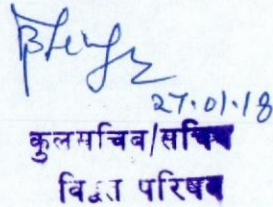 27.01.18
कुलसचिव/सचिव
परिषद